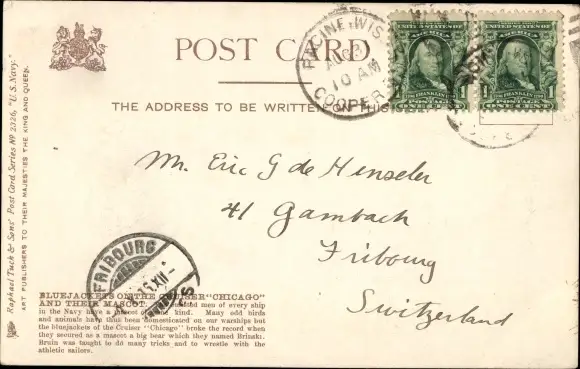 POST CARD
THE ADDRESS TO BE WRITTEN ON THIS SIDE
RACINE, WIS.
10 AM
COOPER
UNITED STATES OF AMERICA
1 FRANKLIN 1
POSTAGE
ONE CENT
UNITED STATES OF AMERICA
1 FRANKLIN 1
POSTAGE
ONE CENT
Mr. Eric G de Henseler
41 Gambach
Fribourg
Switzerland
FRIBOURG
XII
Raphael Tuck & Sons' Post Card Series Nº 2326, "U. S. Navy."
ART PUBLISHERS TO THEIR MAJESTIES THE KING AND QUEEN.
BLUEJACKETS ON THE CRUISER "CHICAGO"
AND THEIR MASCOT. men of every ship
in the Navy have a mascot of some kind. Many odd birds
and animals have thus been domesticated on our warships but
the bluejackets of the Cruiser "Chicago" broke the record when
they secured as a mascot a big bear which they named Brinski.
Bruin was taught to do many tricks and to wrestle with the
athletic sailors.